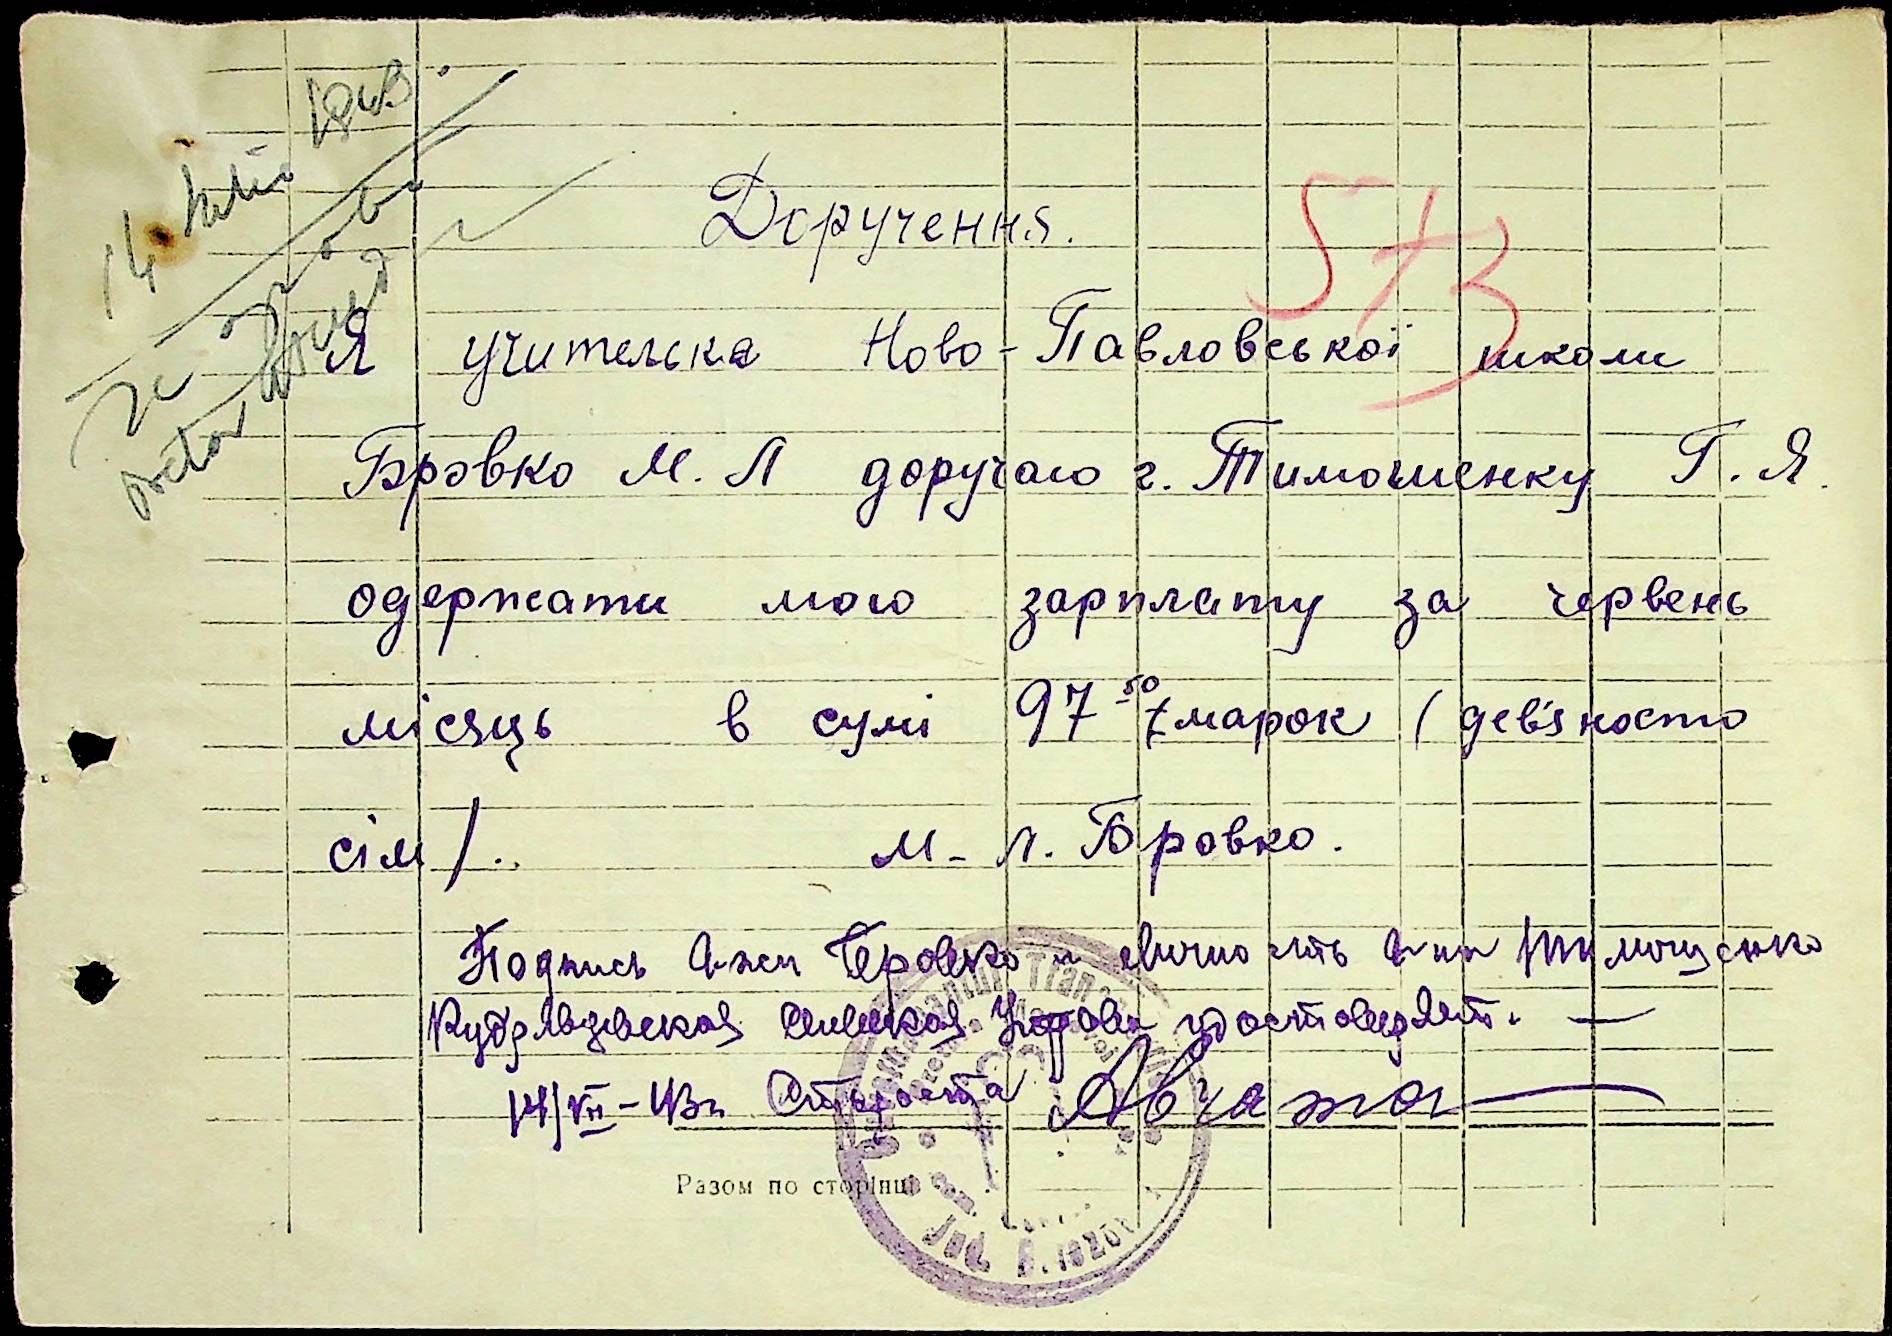 14 Iulie 1943.
573
Доручення.
Я учителька Ново-Павловської школи
Бровко М. Л доручаю г. Тимошенку Г. Я.
одержати мою зарплату за червень
місяць в сумі 97 50/ марок (дев'яносто
сім/.
М. Л. Бровко.
Подпись Г-жи Бровко и личность Г-на Тимошенко
Кудрявцевская Сельская Управа удостоверяет. —
14/VII-43г. Староста
Разом по сторінці